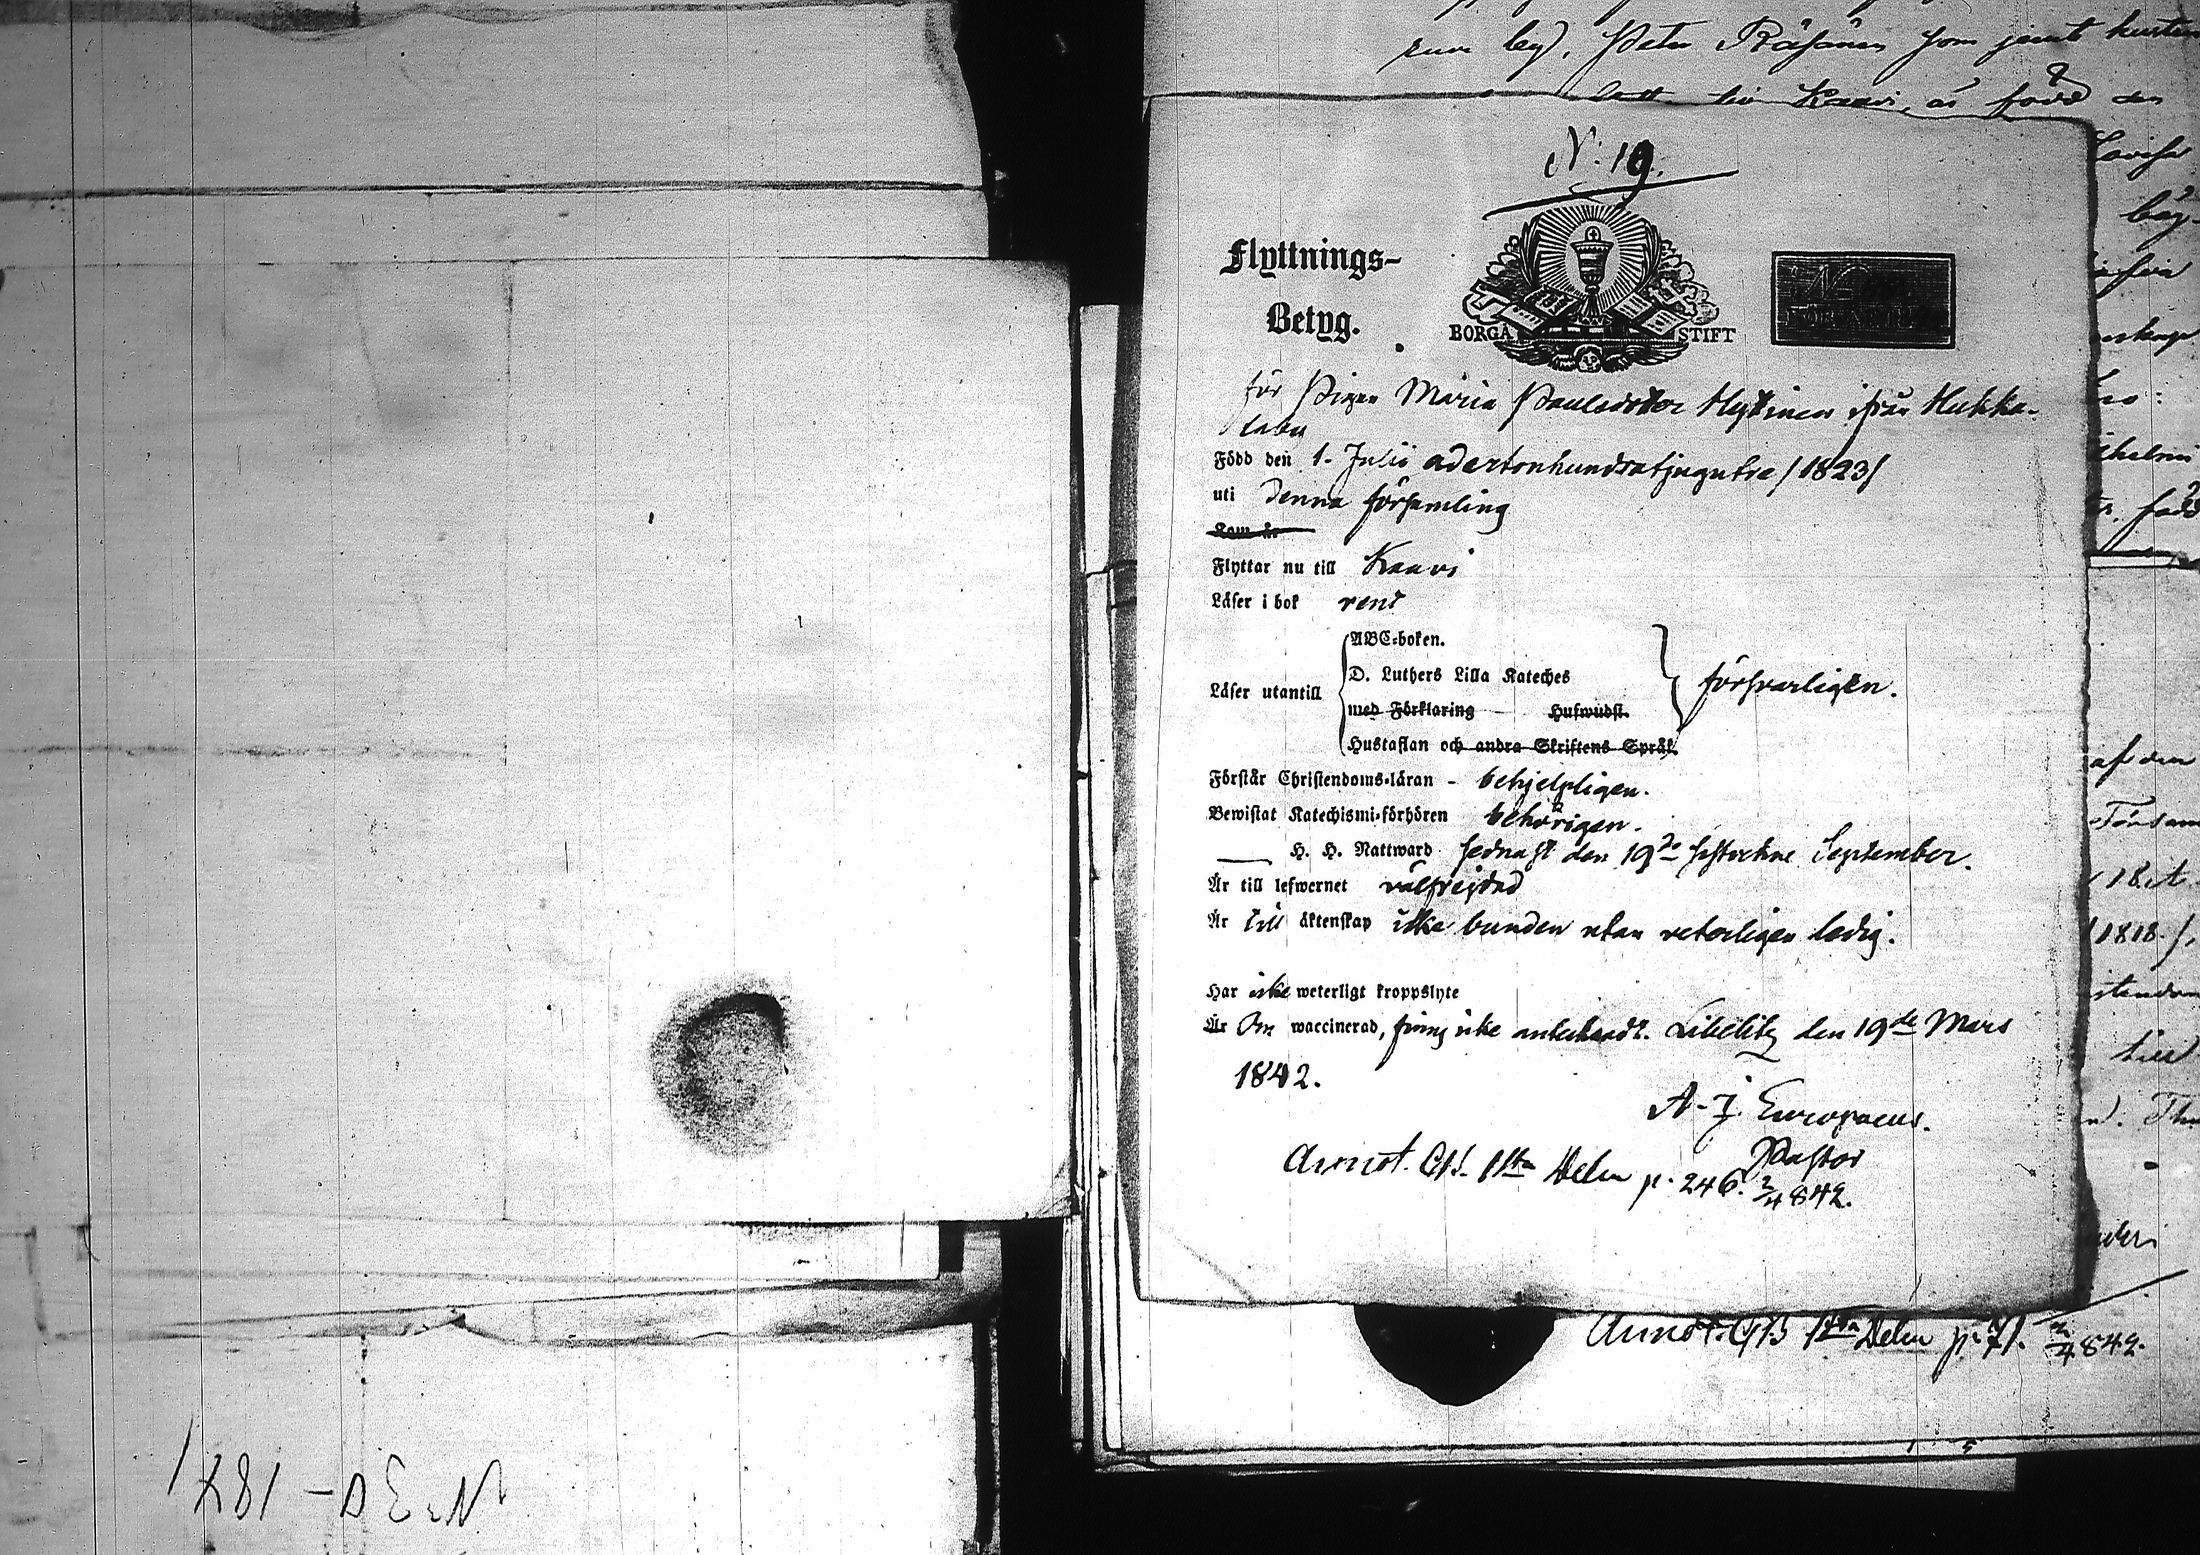 rum by), Peter Räsänen som jemt hustru
till Kaavi, är född den
N: 19.
Flyttnings-
Betyg.
BORGÅ STIFT
för Pigan Maria Paulsdotter Hyttinen ifrån Hukka-
labu
Född den 1. Julii adertonhundratjugutre /1823/
uti denna församling
Kom år
Flyttar nu till Kaavi
Läser i bok rent
Läser utantill
ABC-boken.
D. Luthers Lilla Kateches
med Förklaring Huswudst.
Hustaflan och andra Skriftens Språk.
försvarligen.
Förstår Christendoms-läran - behjelpligen.
Bewistat Katechismi-förhören behörigen.
H. H. Nattward sednast den 19de sistvekne September.
Är till lefwernet välfrejdad
Är till äktenskap icke bunden utan veterligen ledig.
Har icke weterligt kroppslyte
Är Om waccinerad, finns icke anteknadt. Libelitz den 19de Mars
1842.
A. J. Europaeus.
Pastor
Annot. CB. 1sta Delen p. 246. 2/4 842.
Annot. CB 1sta Delen p. 71. 2/4 842.
Lovisa
by
eskap
helmi
född
af den
Försam
1818./,
till
N: 30 - 1871